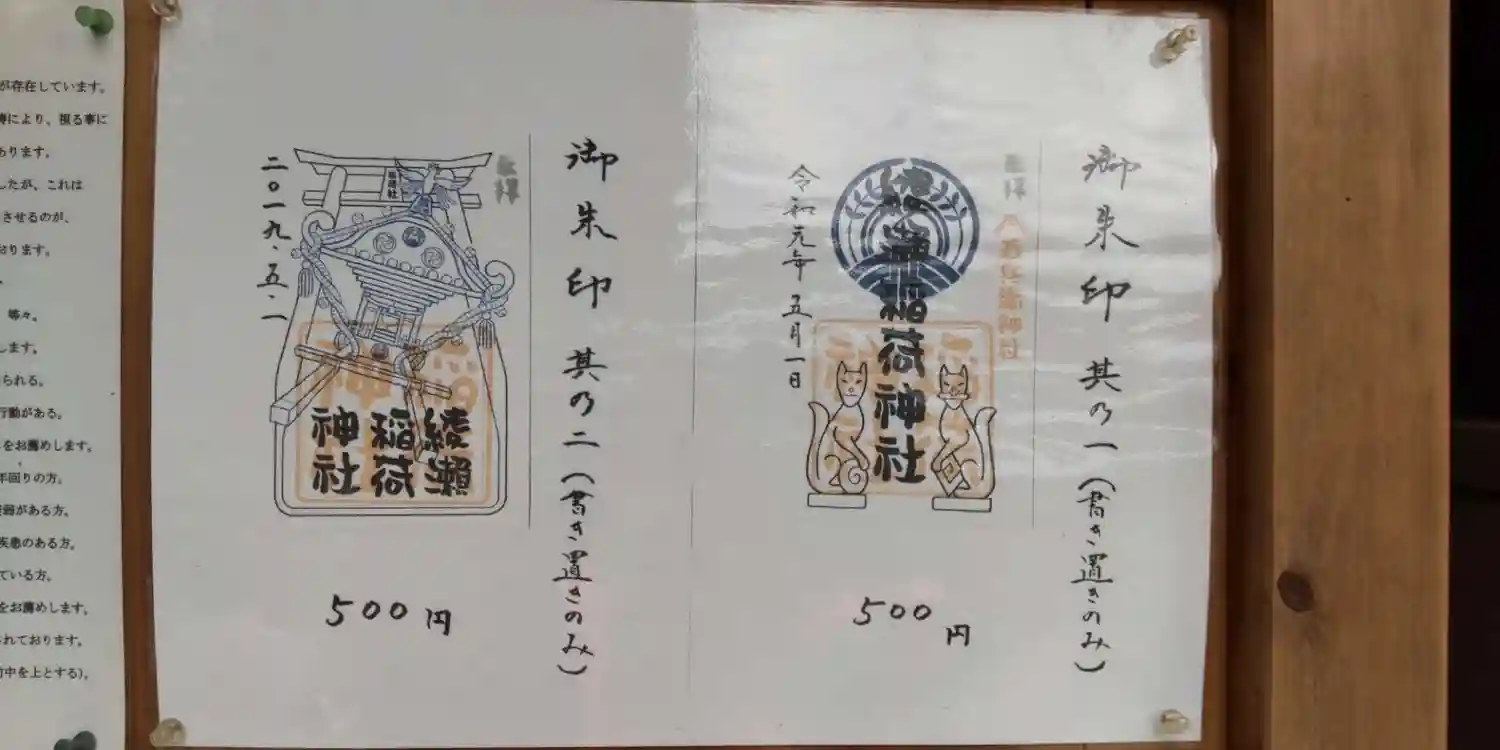 御朱印 其乃一(書き置きのみ)
奉拝
綾瀬稲荷神社
令和元年五月一日
500円
御朱印 其乃二(書き置きのみ)
奉拝
綾瀬
稲荷
神社
二〇一九・五・一
500円
が存在しています。
により、
あります。
したが、これは
させるのが、
おります。
等々。
します。
られる。
行動がある。
をお薦めします。
年回りの方。
がある方。
疾患のある方。
ている方。
をお薦めします。
れております。
中を上とする)。